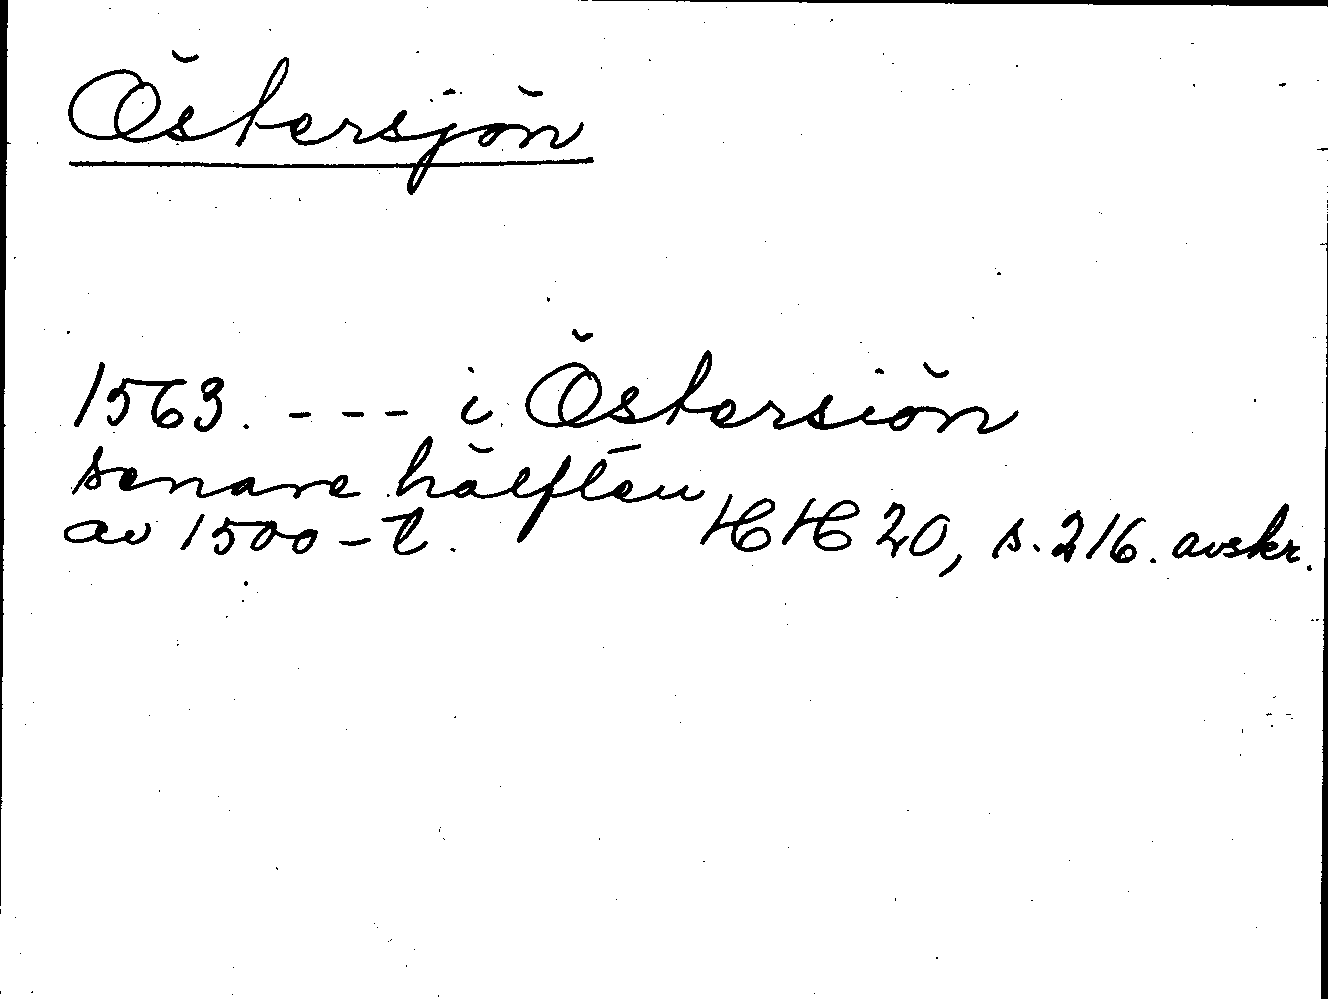 Östersjön
1563. - - - i Östersiön
senare hälften
av 1500-t. HH 20, s. 216. avskr.